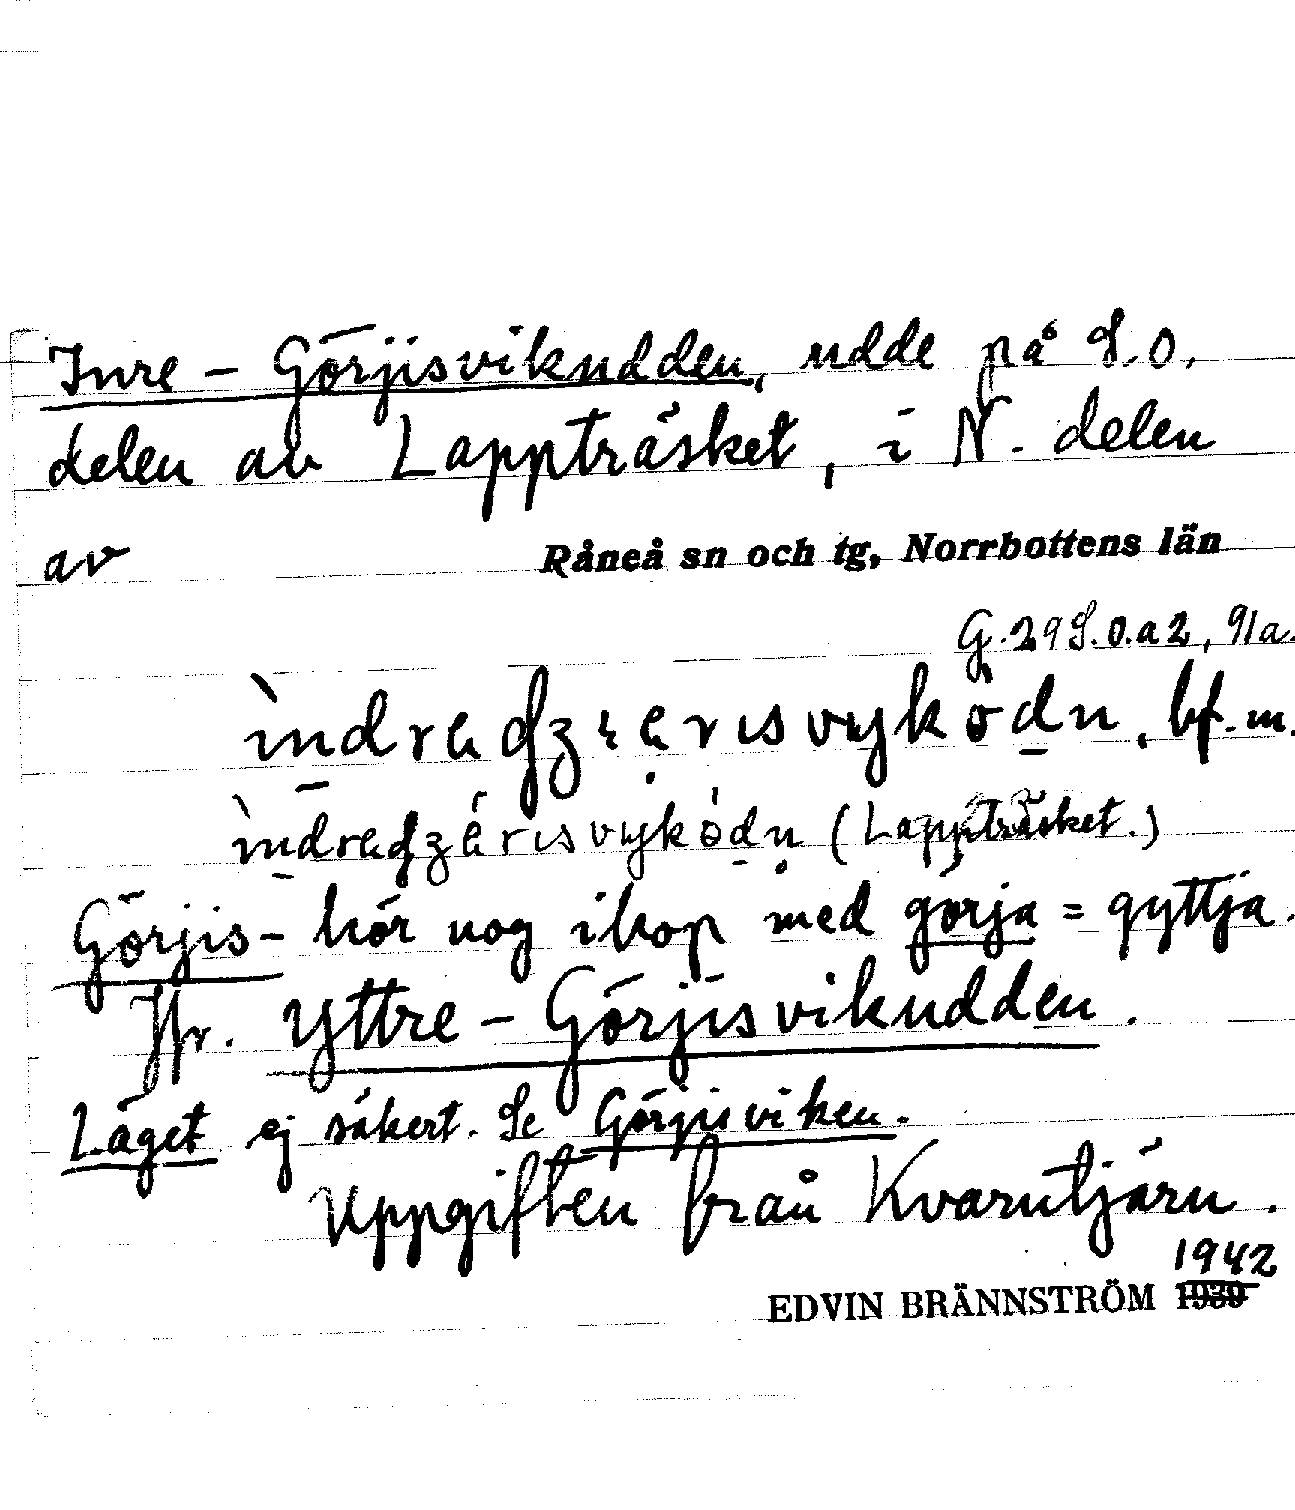 Inre - Görjisvikudden, udde på S.O.
delen av Lappträsket, i N. delen
av Råneå sn och tg, Norrbottens län
G. 29 S.O. a 2, 91a.
bf. m.
(Lappträsket.)
Görjis- hör nog ihop med görja = gyttja.
Jfr. Yttre - Görjisvikudden.
Läget ej säkert. Se Görjisviken.
Uppgiften från Kvarntjärn.
1942
EDVIN BRÄNNSTRÖM 1939